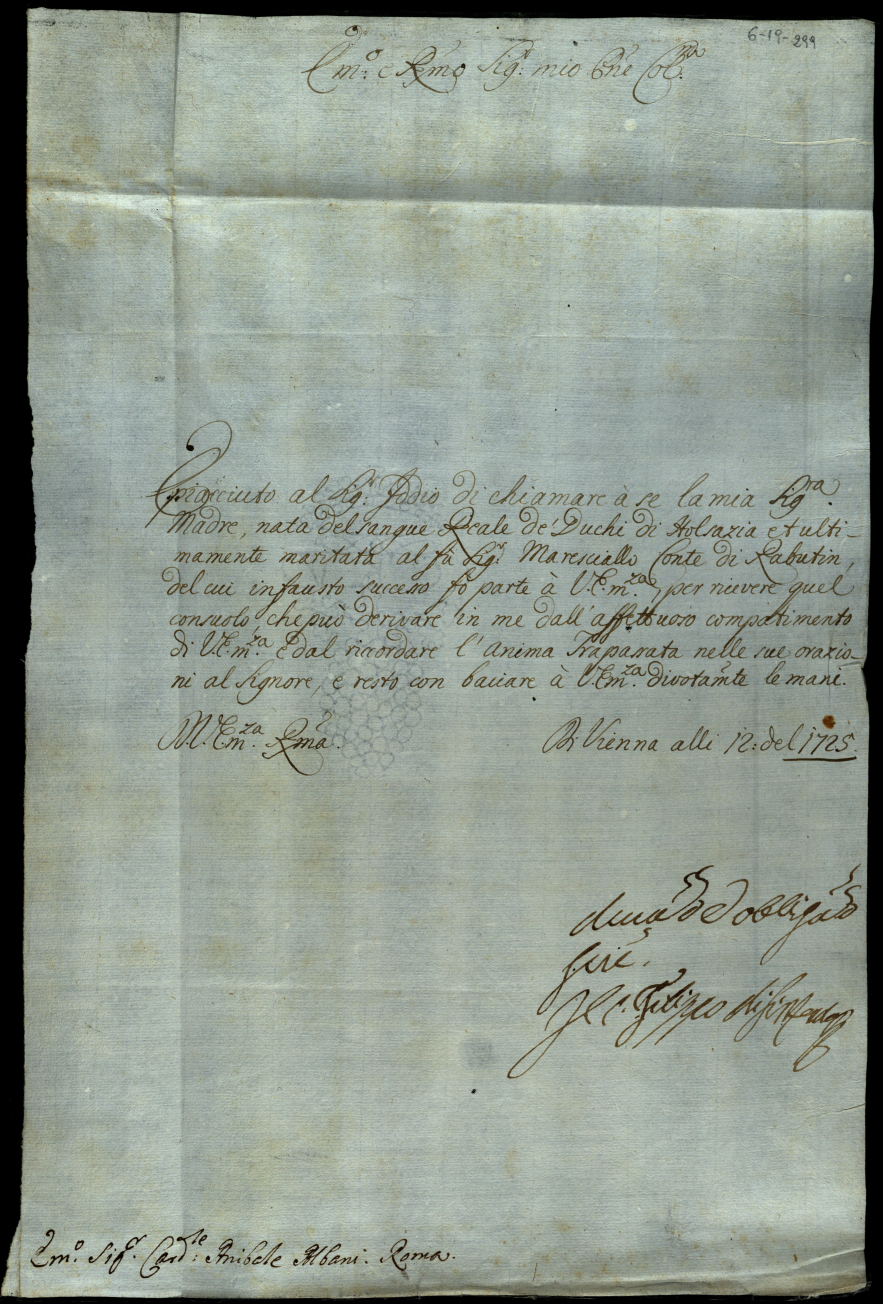 6-19-299
Em.º e Rmo Sig.r mio Pne Col.mo
È piacciuto al Sig.r Iddio di chiamare à se la mia Sig.ra
Madre, nata del sangue Reale de' Duchi di Holsazia et ulti-
mamente maritata al fù Sig.r Maresciallo Conte di Rabutin,
del cui infausto successo fò parte à V. Em.za, per ricevere quel
consuolo, che può derivare in me dall'affettuoso compatimento
di V. Em.za e dal ricordare l'Anima Trapassata nelle sue orazio-
ni al Signore, e resto con bacciare à V. Em.za divotam.te le mani.
V. Em.za Rma.
Di Vienna alli 12: del 1725.
ed obbliga.mo
Ser.e
Il C. Filippo
Em.º Sig.r Card.le Anibale Albani. Roma.